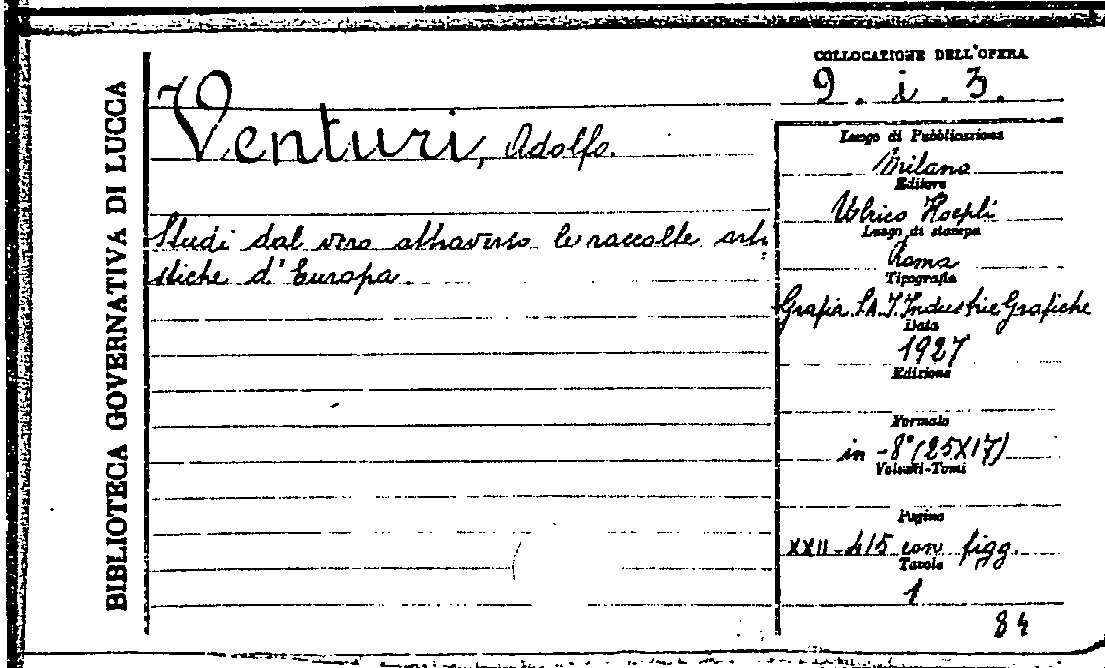 BIBLIOTECA GOVERNATIVA DI LUCCA
COLLOCAZIONE DELL'OPERA
9. i. 3.
Venturi, Adolfo.
Studi dal vero attraverso le raccolte arti-
stiche d'Europa.
Luogo di Pubblicazione
Milano
Editore
Ulrico Hoepli
Luogo di stampa
Roma
Tipografia
Grafia S.A.I. Industrie Grafiche
Data
1927
Edizione
Formato
in-8° (25X17)
Volumi-Tomi
Pagine
XXII-415 con figg.
Tavole
1
84